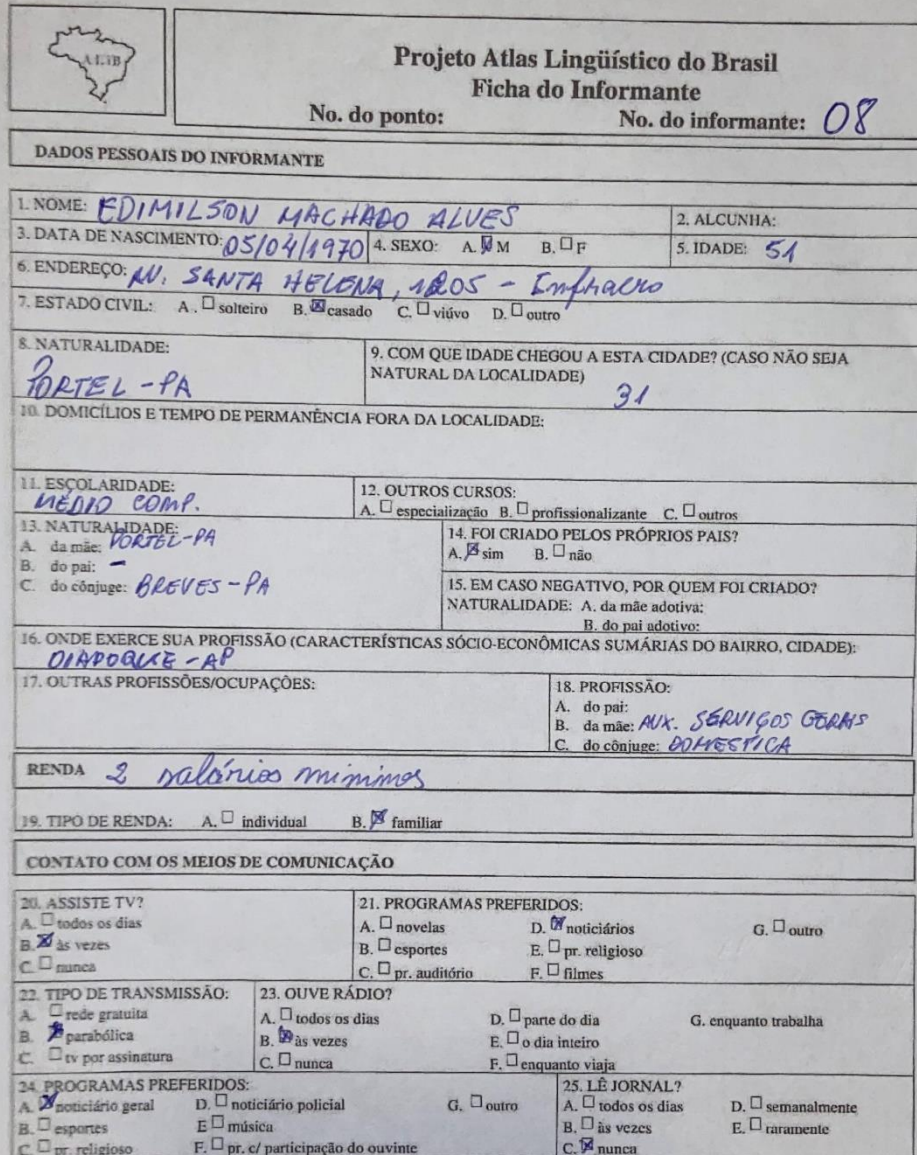 ALiB
Projeto Atlas Lingüístico do Brasil
Ficha do Informante
No. do ponto: No. do informante: 08
DADOS PESSOAIS DO INFORMANTE
1. NOME: EDIMILSON MACHADO ALVES
2. ALCUNHA:
3. DATA DE NASCIMENTO: 05/04/1970 4. SEXO: A. ☒ M B. ☐ F 5. IDADE: 51
6. ENDEREÇO: AV. SANTA HELENA, 1205 - Infraero
7. ESTADO CIVIL: A. ☐ solteiro B. ☒ casado C. ☐ viúvo D. ☐ outro
8. NATURALIDADE:
PORTEL - PA
9. COM QUE IDADE CHEGOU A ESTA CIDADE? (CASO NÃO SEJA
NATURAL DA LOCALIDADE)
31
10. DOMICÍLIOS E TEMPO DE PERMANÊNCIA FORA DA LOCALIDADE:
11. ESCOLARIDADE:
MÉDIO COMP.
12. OUTROS CURSOS:
A. ☐ especialização B. ☐ profissionalizante C. ☐ outros
13. NATURALIDADE:
A. da mãe: PORTEL-PA
B. do pai: -
C. do cônjuge: BREVES-PA
14. FOI CRIADO PELOS PRÓPRIOS PAIS?
A. ☒ sim B. ☐ não
15. EM CASO NEGATIVO, POR QUEM FOI CRIADO?
NATURALIDADE: A. da mãe adotiva:
B. do pai adotivo:
16. ONDE EXERCE SUA PROFISSÃO (CARACTERÍSTICAS SÓCIO-ECONÔMICAS SUMÁRIAS DO BAIRRO, CIDADE):
OIAPOQUE-AP
17. OUTRAS PROFISSÕES/OCUPAÇÕES:
18. PROFISSÃO:
A. do pai:
B. da mãe: AUX. SERVIÇOS GERAIS
C. do cônjuge: DOMESTICA
RENDA 2 salários mínimos
19. TIPO DE RENDA: A. ☐ individual B. ☒ familiar
CONTATO COM OS MEIOS DE COMUNICAÇÃO
20. ASSISTE TV?
A. ☐ todos os dias
B. ☒ às vezes
C. ☐ nunca
21. PROGRAMAS PREFERIDOS:
A. ☐ novelas D. ☒ noticiários G. ☐ outro
B. ☐ esportes E. ☐ pr. religioso
C. ☐ pr. auditório F. ☐ filmes
22. TIPO DE TRANSMISSÃO:
A. ☐ rede gratuita
B. ☒ parabólica
C. ☐ tv por assinatura
23. OUVE RÁDIO?
A. ☐ todos os dias D. ☐ parte do dia G. enquanto trabalha
B. ☒ às vezes E. ☐ o dia inteiro
C. ☐ nunca F. ☐ enquanto viaja
24. PROGRAMAS PREFERIDOS:
A. ☒ noticiário geral D. ☐ noticiário policial G. ☐ outro
B. ☐ esportes E ☐ música
C. ☐ pr. religioso F. ☐ pr. c/ participação do ouvinte
25. LÊ JORNAL?
A. ☐ todos os dias D. ☐ semanalmente
B. ☐ às vezes E. ☐ raramente
C. ☒ nunca